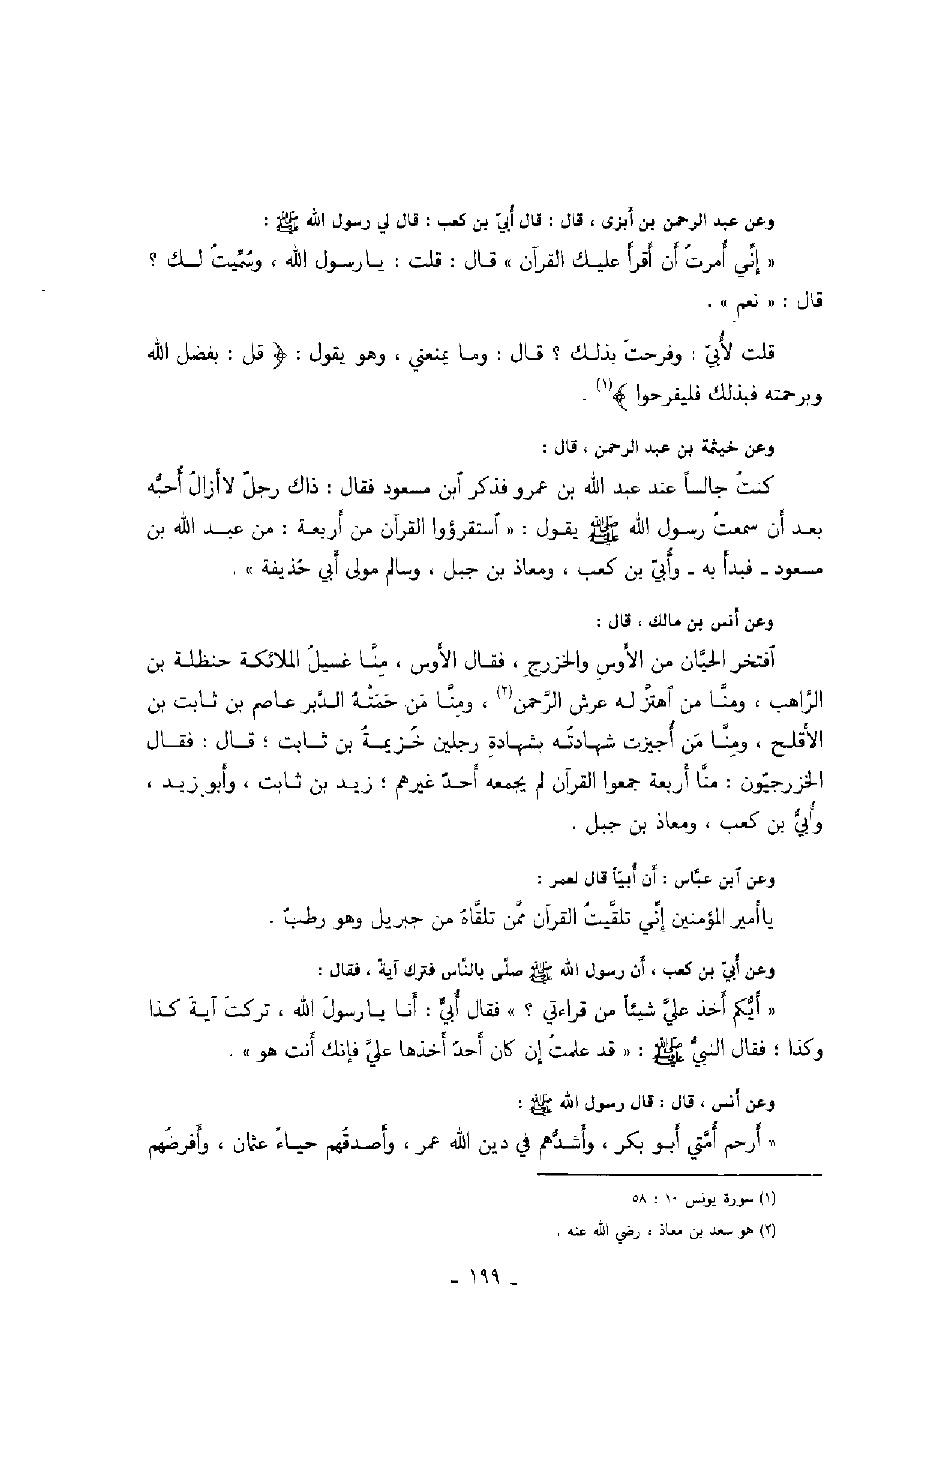 وعن عبد الرحمن بن أبزى ، قال : قال أُبيّ بن كعب : قال لي رسول الله ﷺ :
« إنّي أُمرتُ أن أقرأ عليك القرآن » قال : قلت : يا رسول الله ، وسُمِّيتُ لك ؟
قال : « نعم » .
قلت لأُبيّ : وفرحتَ بذلك ؟ قال : وما يمنعني ، وهو يقول : ﴿ قل : بفضل الله
وبرحمته فبذلك فليفرحوا ﴾(١) .
وعن خيثمة بن عبد الرحمن ، قال :
كنتُ جالساً عند عبد الله بن عمرو فذكر ٱبن مسعود فقال : ذاك رجلٌ لا أزالُ أُحبُّه
بعد أن سمعتُ رسول الله ﷺ يقول : « ٱستقرؤوا القرآن من أربعة : من عبد الله بن
مسعود ـ فبدأ به ـ وأُبيّ بن كعب ، ومعاذ بن جبل ، وسالم مولى أبي حُذيفة » .
وعن أنس بن مالك ، قال :
ٱفتخر الحيَّان من الأوسِ والخزرجِ ، فقال الأوس ، مِنَّا غسيلُ الملائكة حنظلة بن
الرَّاهب ، ومنَّا من ٱهتزَّ له عرش الرَّحمن(٢) ، ومِنَّا مَن حَمَتْهُ الدَّبر عاصم بن ثابت بن
الأقلح ، ومِنَّا مَن أُجيزت شهادتُه بشهادةِ رجلين خُزيمةُ بن ثابت ؛ قال : فقال
الخزرجيّون : منَّا أربعة جمعوا القرآن لم يجمعه أحدٌ غيرهم ؛ زيد بن ثابت ، وأبو زيد ،
وأُبيُّ بن كعب ، ومعاذ بن جبل .
وعن ٱبن عبَّاس : أن أُبيّاً قال لعمر :
يا أمير المؤمنين إنِّي تلقَّيتُ القرآن ممَّن تلقَّاهُ من جبريل وهو رطبٌ .
وعن أُبيّ بن كعب ، أن رسول الله ﷺ صلّى بالنَّاس فترك آيةً ، فقال :
« أيُّكم أخذ عليَّ شيئاً من قراءتي ؟ » فقال أُبيٌّ : أنا يا رسولَ الله ، تركتَ آيةَ كذا
وكذا ؛ فقال النبيُّ ﷺ : « قد علمتُ إن كان أحدٌ أخذها عليَّ فإنك أنت هو » .
وعن أنس ، قال : قال رسول الله ﷺ :
« أرحم أُمَّتي أبو بكر ، وأشدُّهم في دين الله عمر ، وأصدقُهم حياءً عثمان ، وأفرضُهم
(١) سورة يونس ١٠ : ٥٨
(٢) هو سعد بن معاذ ، رضي الله عنه .
ـ ١٩٩ ـ